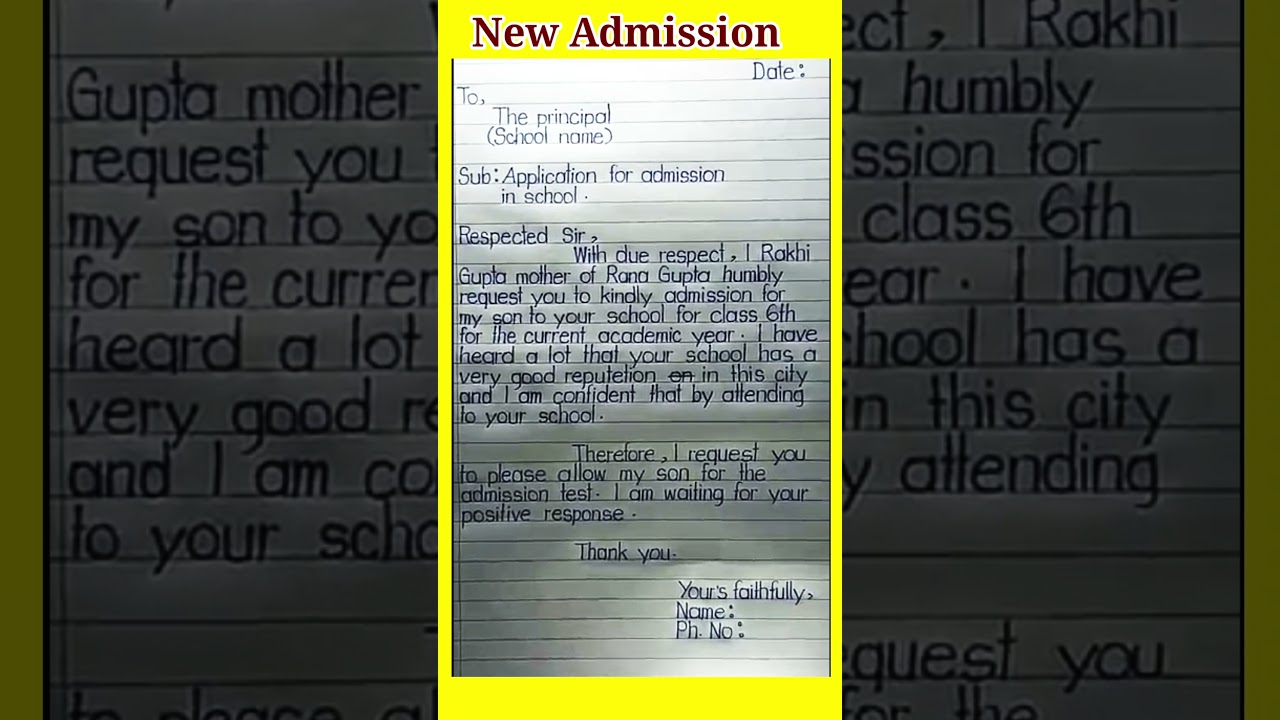 New Admission
Date:
To,
The principal
(School name)
Sub: Application for admission
in school.
Respected Sir,
With due respect, I Rakhi
Gupta mother of Rana Gupta humbly
request you to kindly admission for
my son to your school for class 6th
for the current academic year. I have
heard a lot that your school has a
very good reputetion on in this city
and I am confident that by attending
to your school.
Therefore, I request you
to please allow my son for the
admission test. I am waiting for your
positive response.
Thank you.
Your's faithfully,
Name:
Ph. No: